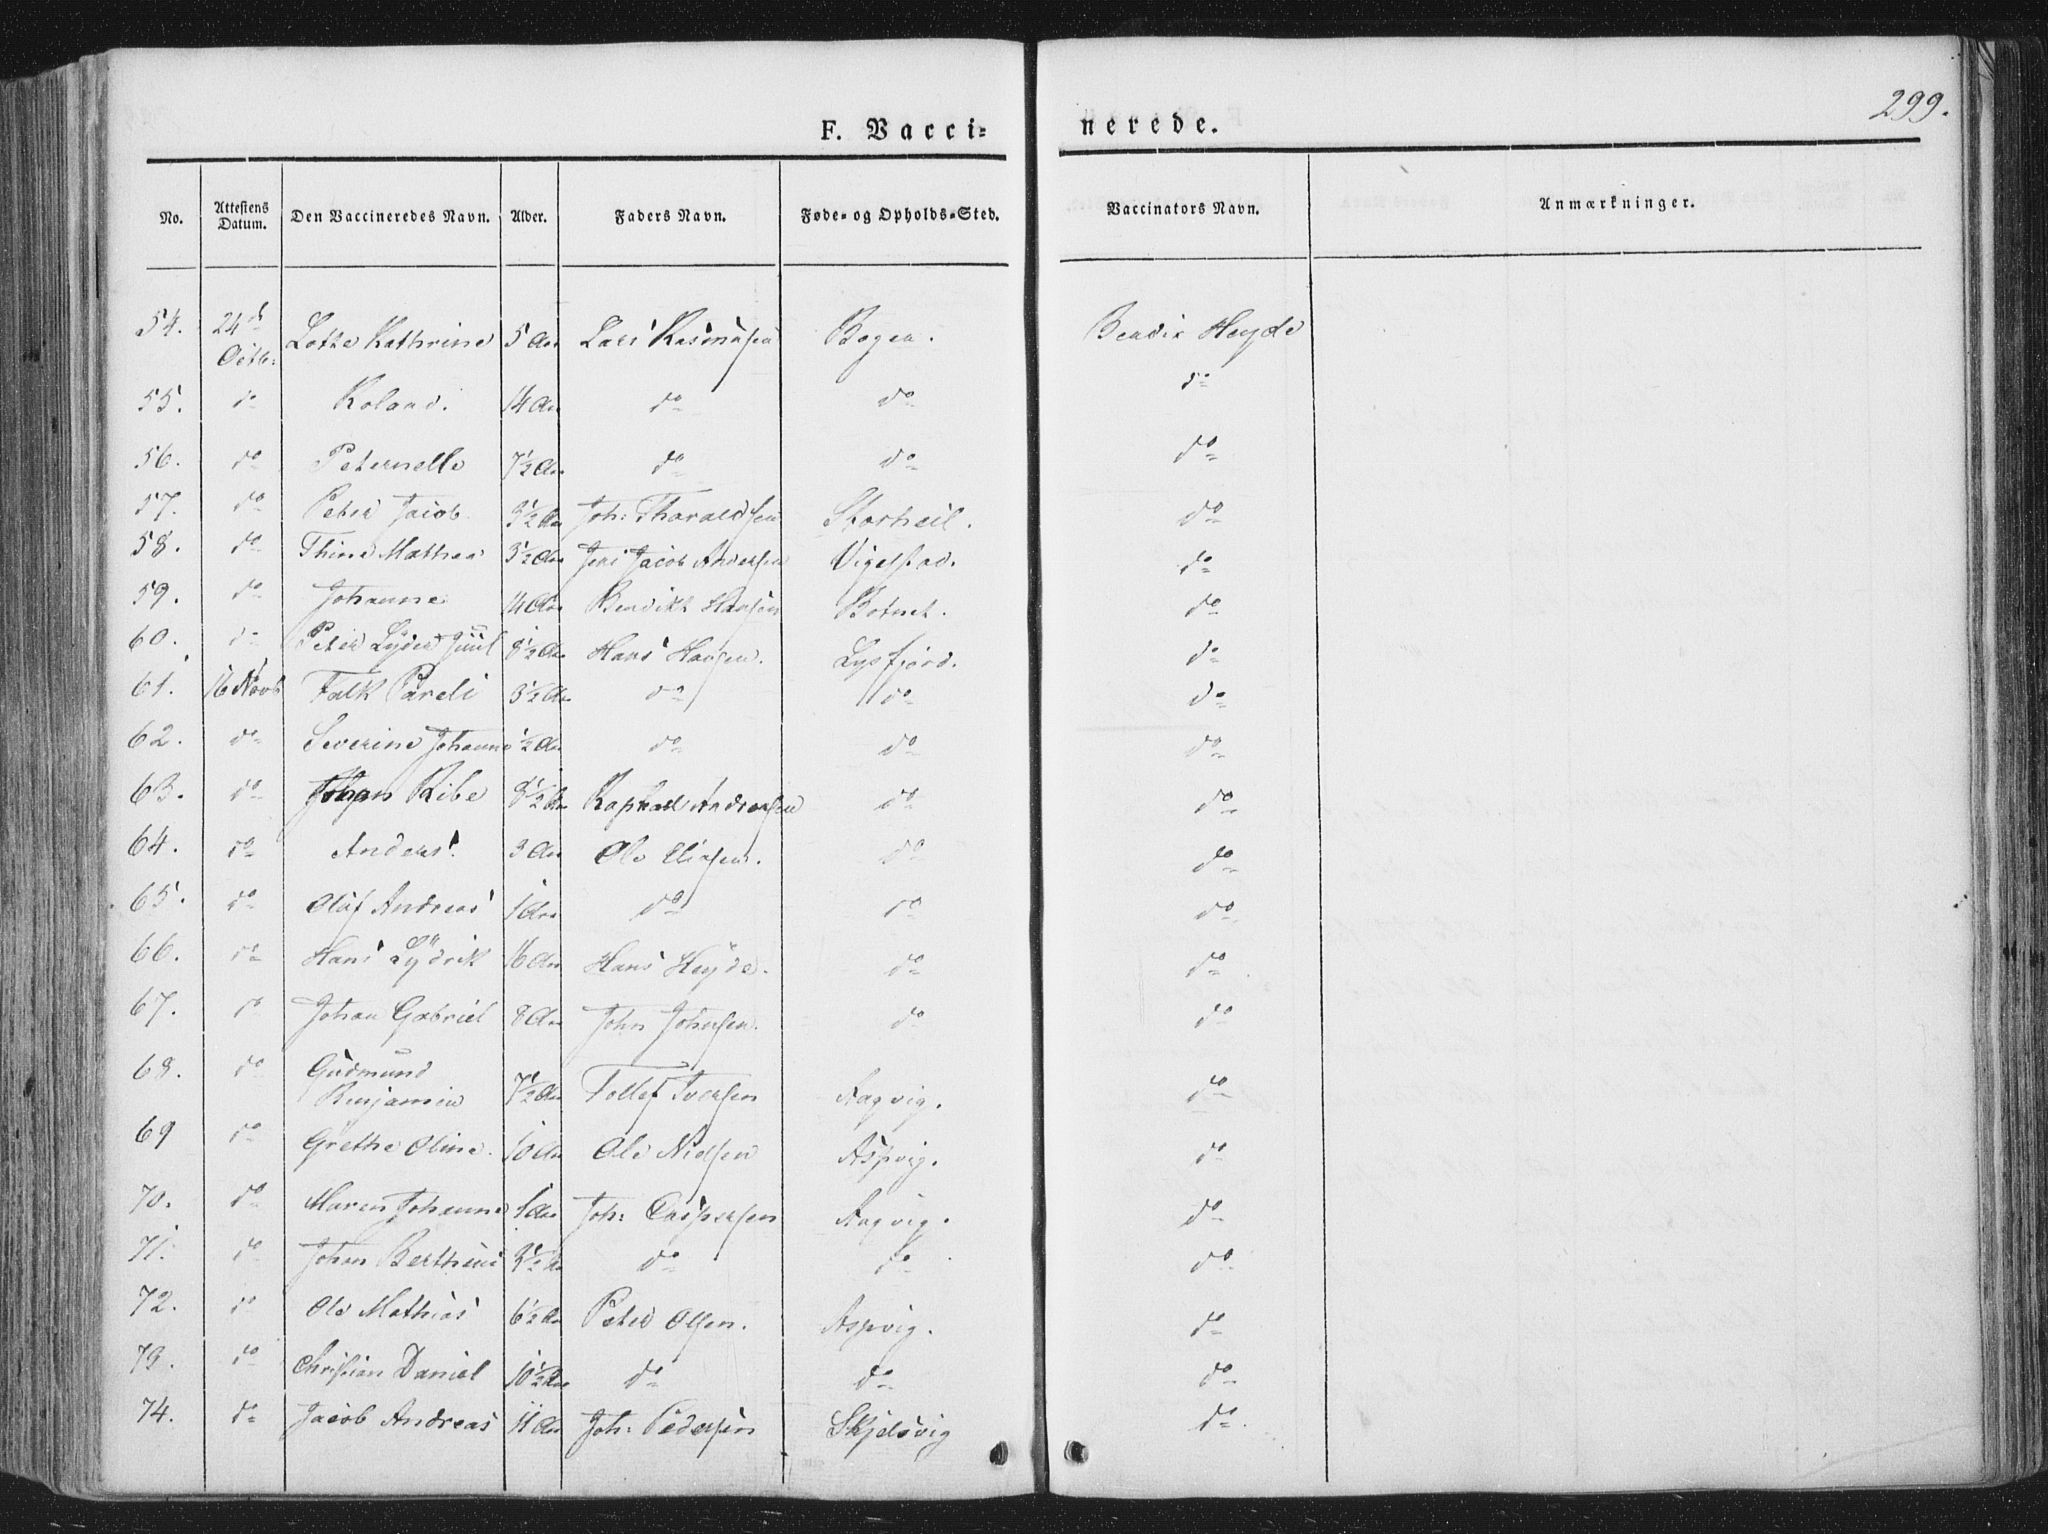 299.
F. Vacci= nerede.
No. Attestens Datum. Den Vaccineredes Navn. Alder. Faders Navn. Føde- og Opholds-Sted. Vaccinators Navn. Anmærkninger.
54. 24d Octb: Lotte Kathrine 5 Aar Lars Rasmusen Bogen. Bendix Heyde
55. do Roland. 14 Aar do do do
56. do Peternelle 7½ Aar do do do
57. do Peter Jacob 3½ Aar Joh: Tharaldsen Storheil. do
58. do Thine Mathea 3½ Aar Jens Jacob Andersen Vigelstad. do
59. do Johanne 14 Aar Bendikt Hansen Botnet. do
60. do Peter Lyder Juul 8½ Aar Hans Hansen. Lysfjord. do
61. 16 Novb Falk Pareli 3½ Aar do do do
62. do Severine Johanne ½ Aar do do do
63. do Johan Ribe 8½ Aar Raphael Andreasen do do
64. do Anders. 3 Aar Ole Eliasen. do do
65. do Oluf Andreas 1 Aar do do do
66. do Hans Lydrik 16 Aar Hans Heyde. do do
67. do Johan Gabriel 8 Aar John Johnsen. do do
68. do Gudmund Benjamin 7½ Aar Tollef Iversen Aagvig. do
69 do Grethe Oline. 10 Aar Ole Nielsen Aspvig. do
70. do Maren Johanne 1 Aar Joh: Caspersen Aagvig. do
71. do Johan Bertheus 3½ Aar do do do
72. do Ole Mathias 6½ Aar Peter Olsen. Aspvig. do
73. do Christian Daniel 10½ Aar do do do
74. do Jacob Andreas 11 Aar Joh: Pedersen Skjelsvig do.